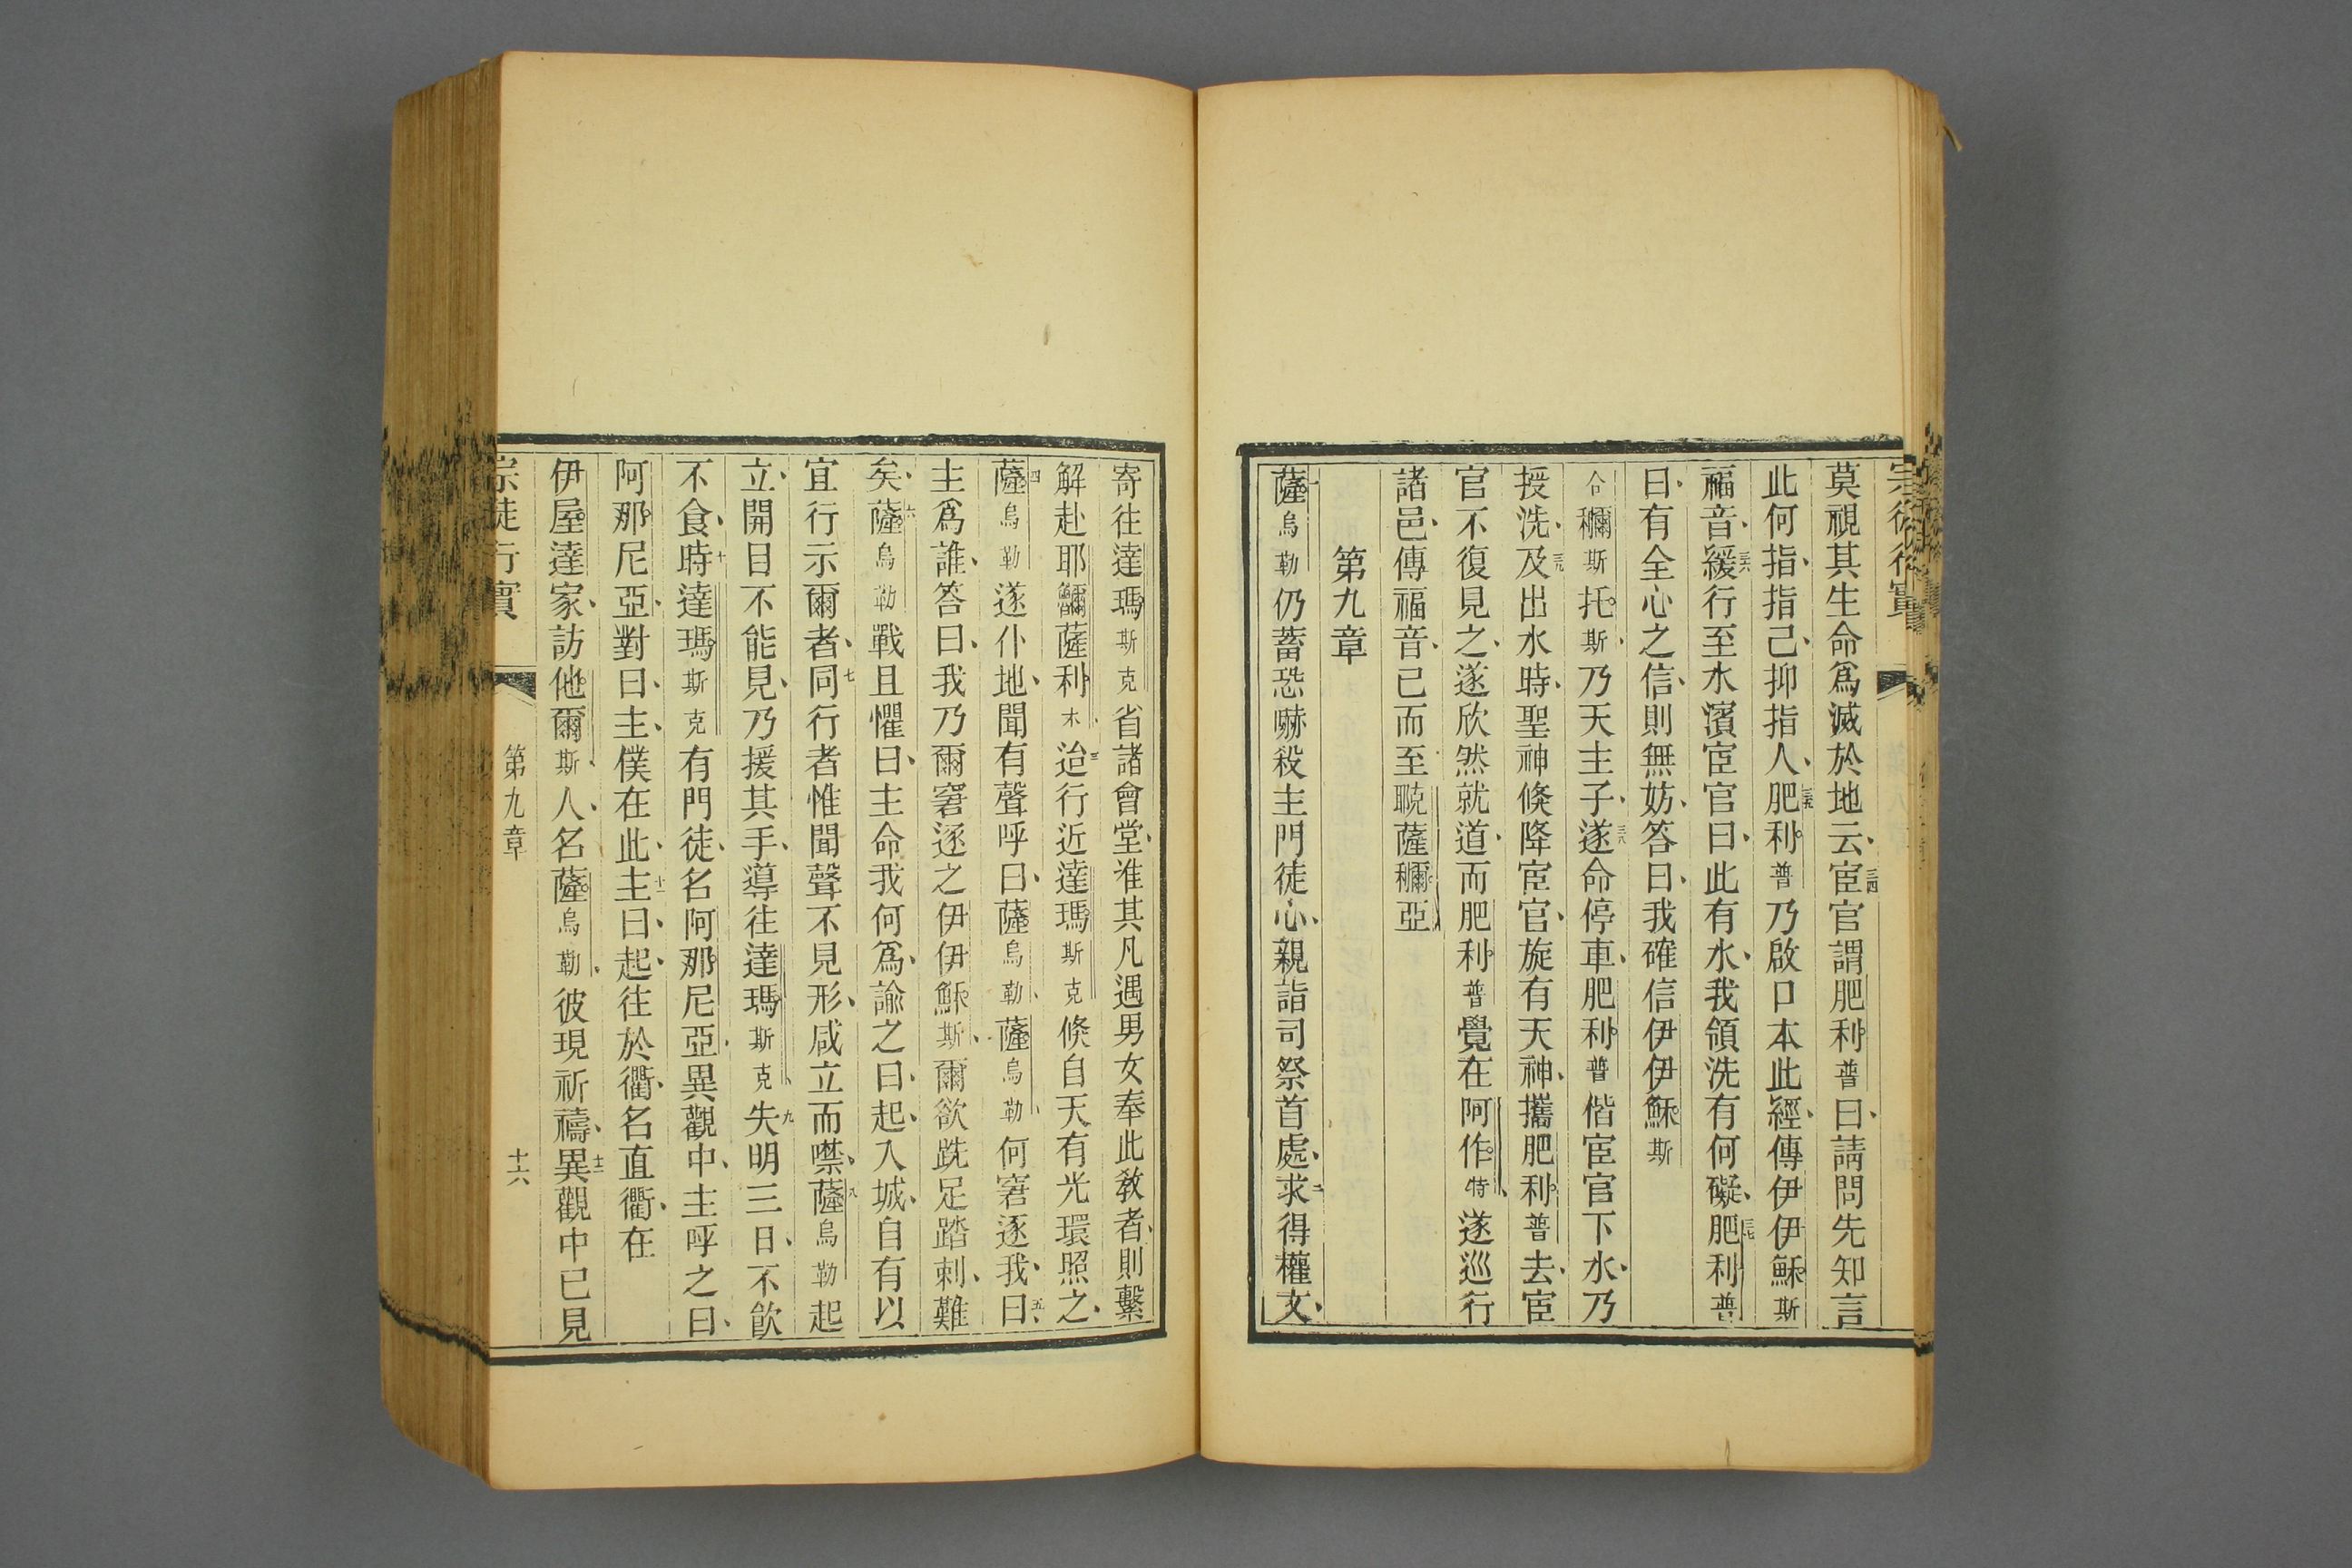 宗徒行實
莫視其生命爲滅於地云三四宦官謂肥利普曰請問先知言
此何指指己抑指人三五肥利普乃啟口本此經傳伊伊穌斯
福音三六緩行至水濱宦官曰此有水我領洗有何礙三七肥利普
曰有全心之信則無妨答曰我確信伊伊穌斯
合穪斯托斯乃天主子三八遂命停車肥利普偕宦官下水乃
授洗三九及出水時聖神倏降宦官旋有天神攜肥利普去宦
官不復見之遂欣然就道而肥利普覺在阿作特遂巡行
諸邑傳福音已而至賘薩穪亞
第九章
一薩烏勒仍蓄恐嚇殺主門徒心親詣司祭首處二求得權文
寄往達瑪斯克省諸會堂准其凡遇男女奉此教者則繫
解赴耶薩利木三迨行近達瑪斯克倏自天有光環照之
四薩烏勒遂仆地聞有聲呼曰薩烏勒薩烏勒何窘逐我五曰
主爲誰答曰我乃爾窘逐之伊伊穌斯爾欲跣足踏刺難
矣六薩烏勒戰且懼曰主命我何爲諭之曰起入城自有以
宜行示爾者七同行者惟聞聲不見形咸立而噤八薩烏勒起
立開目不能見乃援其手導往達瑪斯克九失明三日不飲
不食時十達瑪斯克有門徒名阿那尼亞異觀中主呼之曰
阿那尼亞對曰主僕在此十一主曰起往於衢名直衢在
伊屋達家訪他爾斯人名薩烏勒彼現祈禱十二異觀中已見
宗徒行實 第九章 十六